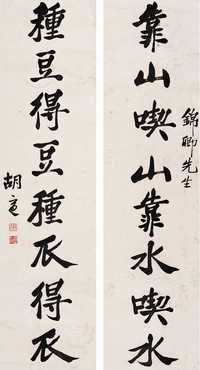 靠山喫山靠水喫水
錦卿先生
種豆得豆種瓜得瓜
胡適